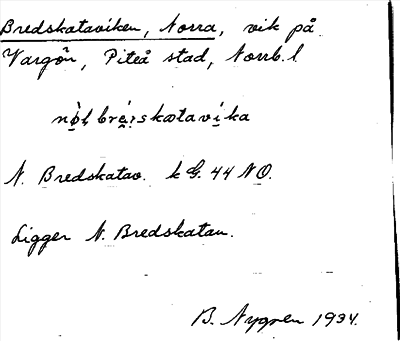 Bredskataviken, Norra, vik på
Vargön, Piteå stad, Norrb. l
nọ̀ḷ brẹ́ːskatavị́ka
N. Bredskatav. k G. 44 NO.
Ligger N. Bredskatan.
B. Nygren 1934.